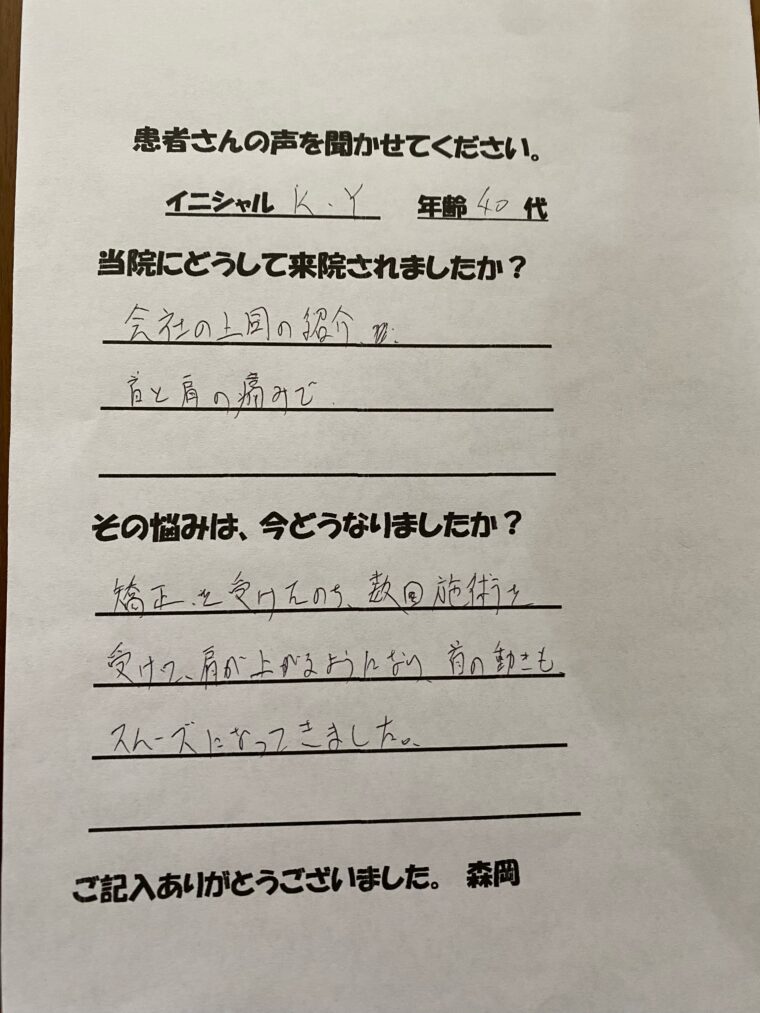 患者さんの声を聞かせてください。
イニシャル K.Y 年齢 40 代
当院にどうして来院されましたか？
会社の上司の紹介、
首と肩の痛みで
その悩みは、今どうなりましたか？
矯正を受けたのち、数回施術を
受けて、肩が上がるようになり、首の動きも
スムーズになってきました。
ご記入ありがとうございました。 森岡